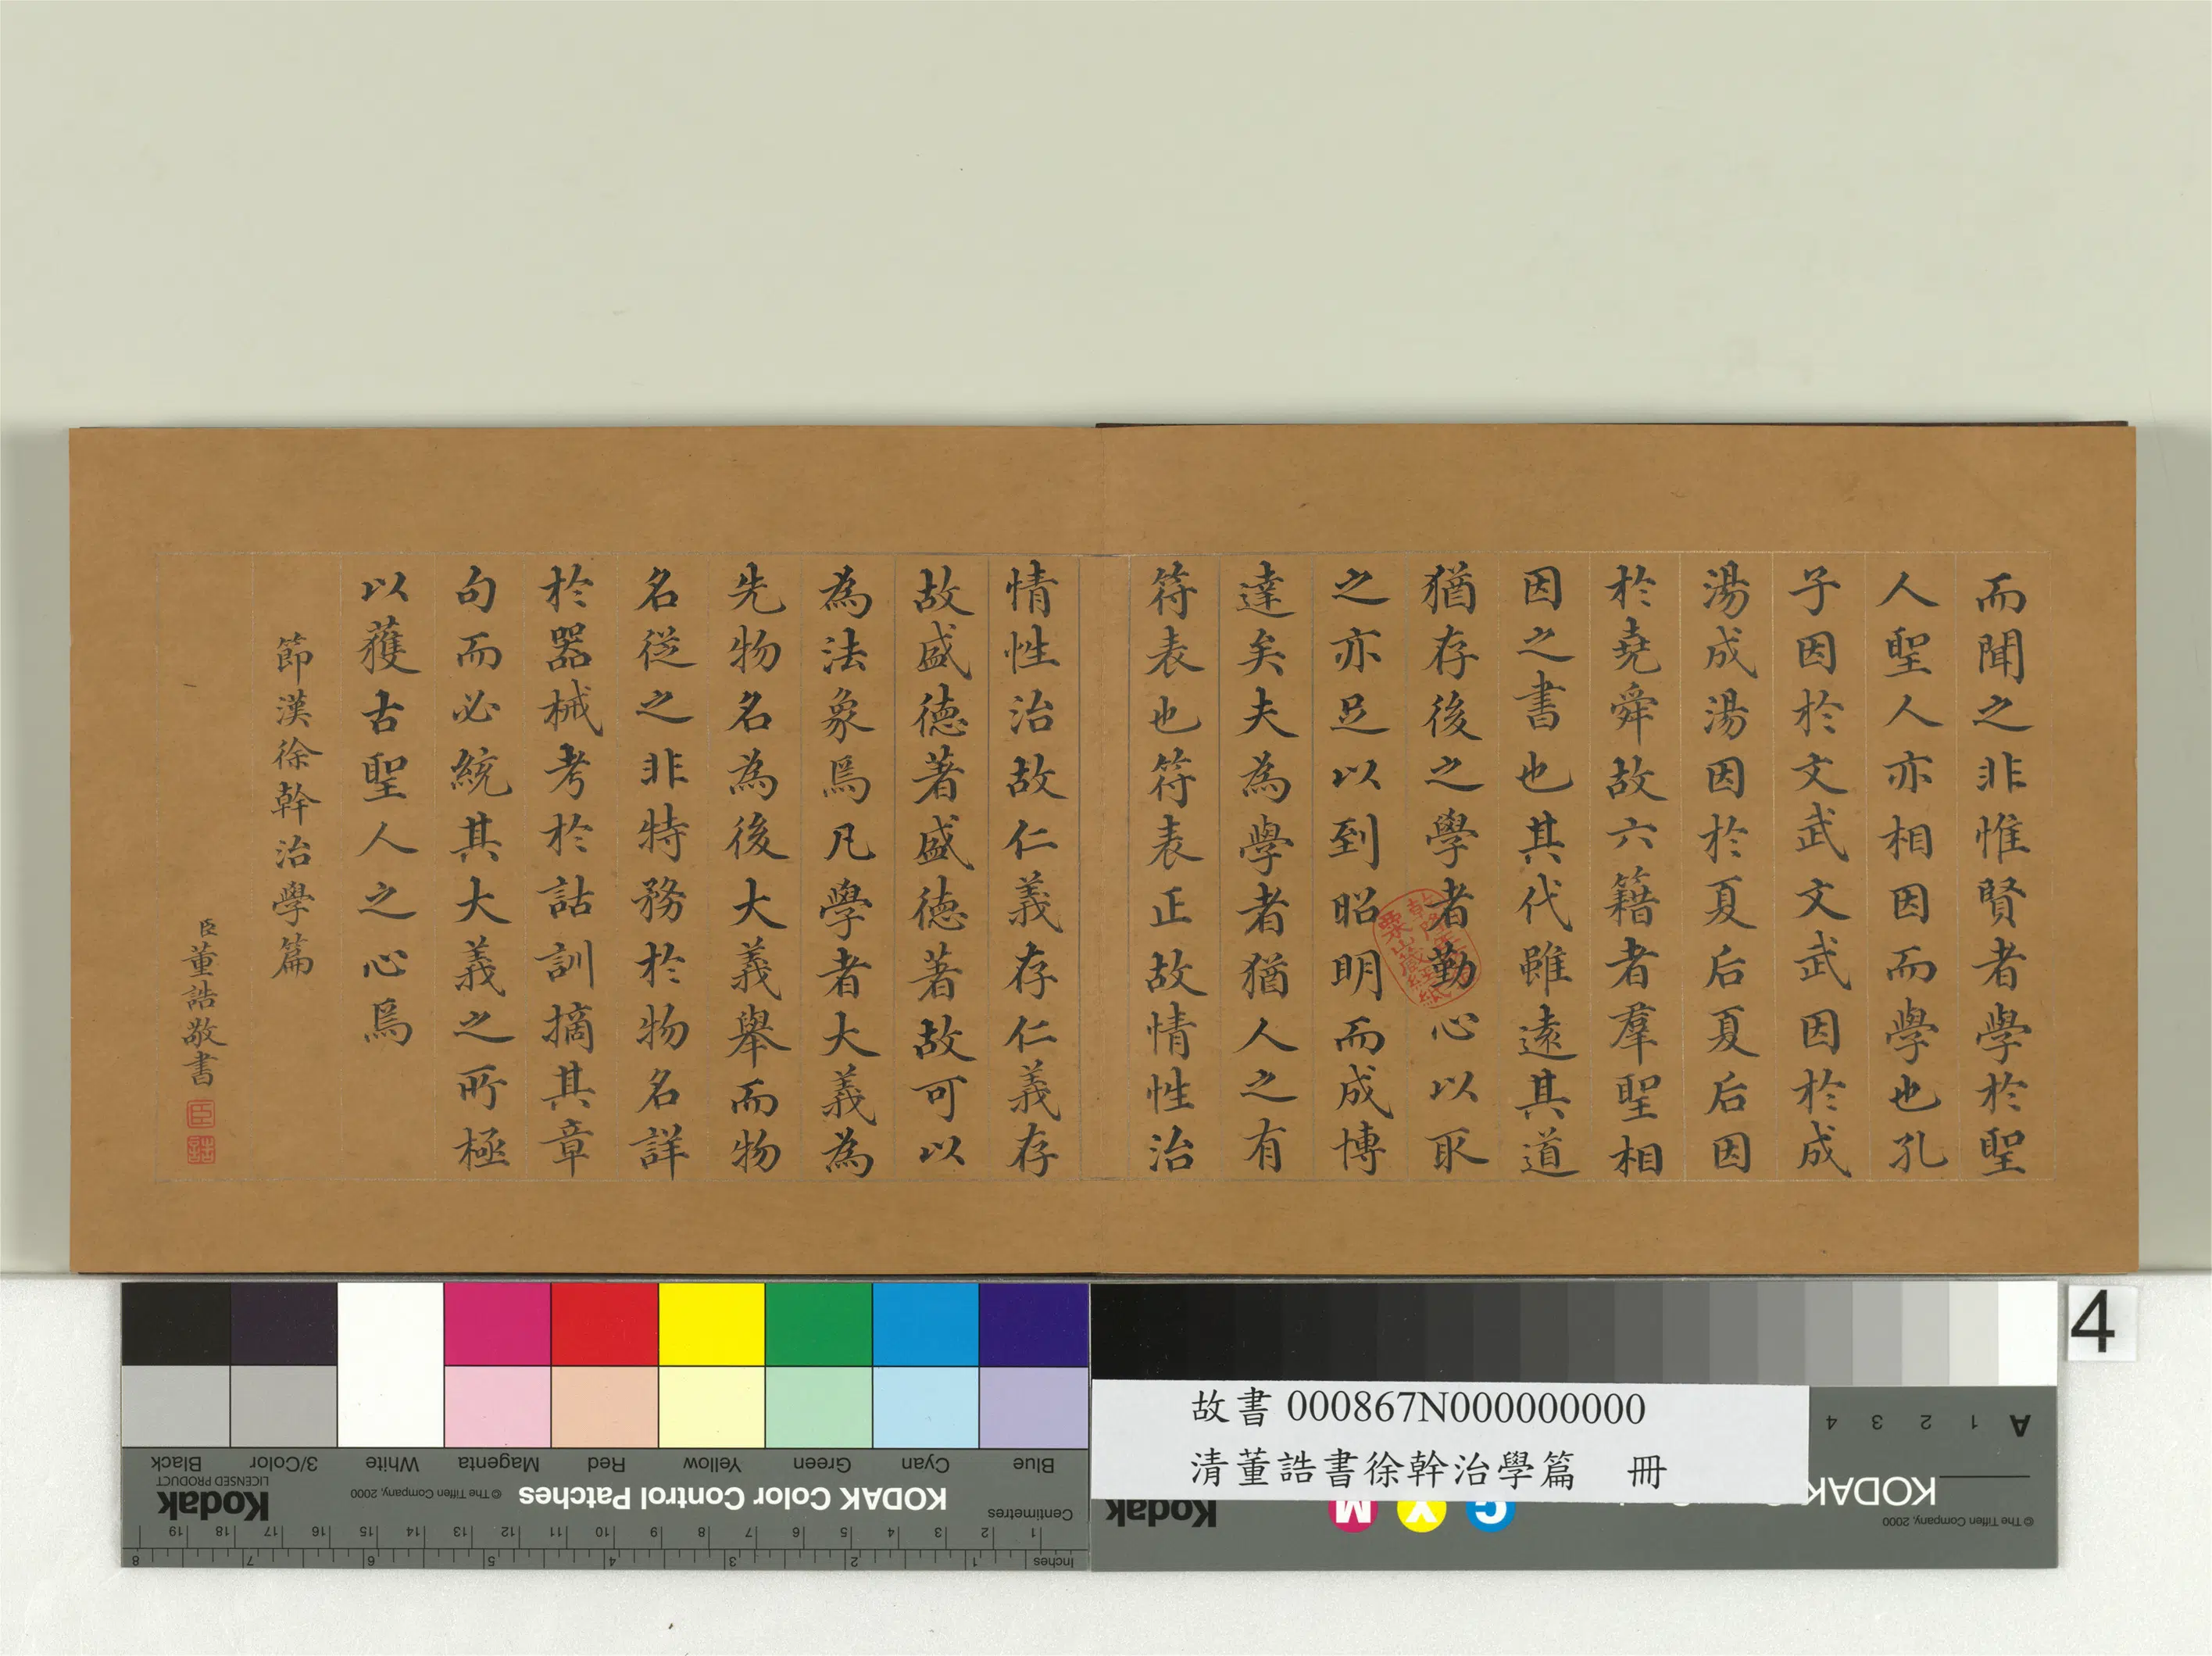 而聞之非惟賢者學於聖
人聖人亦相因而學也孔
子因於文武文武因於成
湯成湯因於夏后夏后因
於堯舜故六籍者羣聖相
因之書也其代雖遠其道
猶存後之學者勤心以取
之亦足以到昭明而成博
達矣夫為學者猶人之有
符表也符表正故情性治
情性治故仁義存仁義存
故盛德著盛德著故可以
為法象焉凡學者大義為
先物名為後大義舉而物
名從之非特務於物名詳
於器械考於詁訓摘其章
句而必統其大義之所極
以獲古聖人之心焉
節漢徐幹治學篇
臣董誥敬書
臣
誥
乾隆年
粟山藏經紙
4
故書 000867N000000000
清董誥書徐幹治學篇 冊
Blue Cyan Green Yellow Red Magenta White 3/Color Black
KODAK Color Control Patches
© The Tiffen Company, 2000
Kodak
LICENSED PRODUCT
Centimetres 1 2 3 4 5 6 7 8 9 10 11 12 13 14 15 16 17 18 19
Inches 1 2 3 4 5 6 7 8
A 1 2 3 4
KODAK
© The Tiffen Company, 2000
Kodak
C Y M